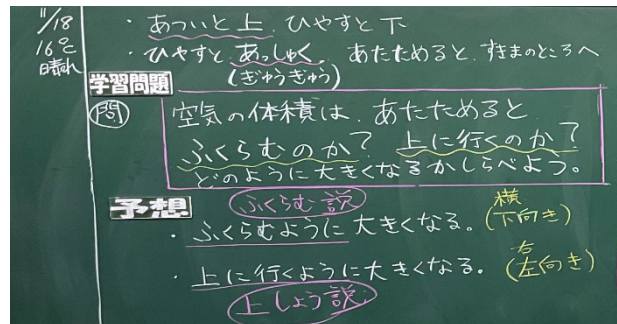 11/18
16℃
晴れ
・あついと上、ひやすと下
・ひやすとあっしゅく、あたためると、すきまのところへ
(ぎゅうぎゅう)
学習問題
問
空気の体積は、あたためると
ふくらむのか? 上に行くのか?
どのように大きくなるかしらべよう。
予想
ふくらむ説
・ふくらむように大きくなる。
横
(下向き)
・上に行くように大きくなる。
右
(左向き)
上しょう説